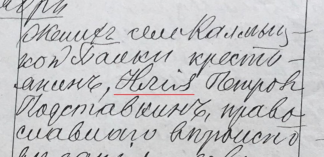 Женихъ села Калмыц-
кой Балки кресть-
янинъ, Петровъ
Подставкинъ, право-
славнаго вѣроиспо-